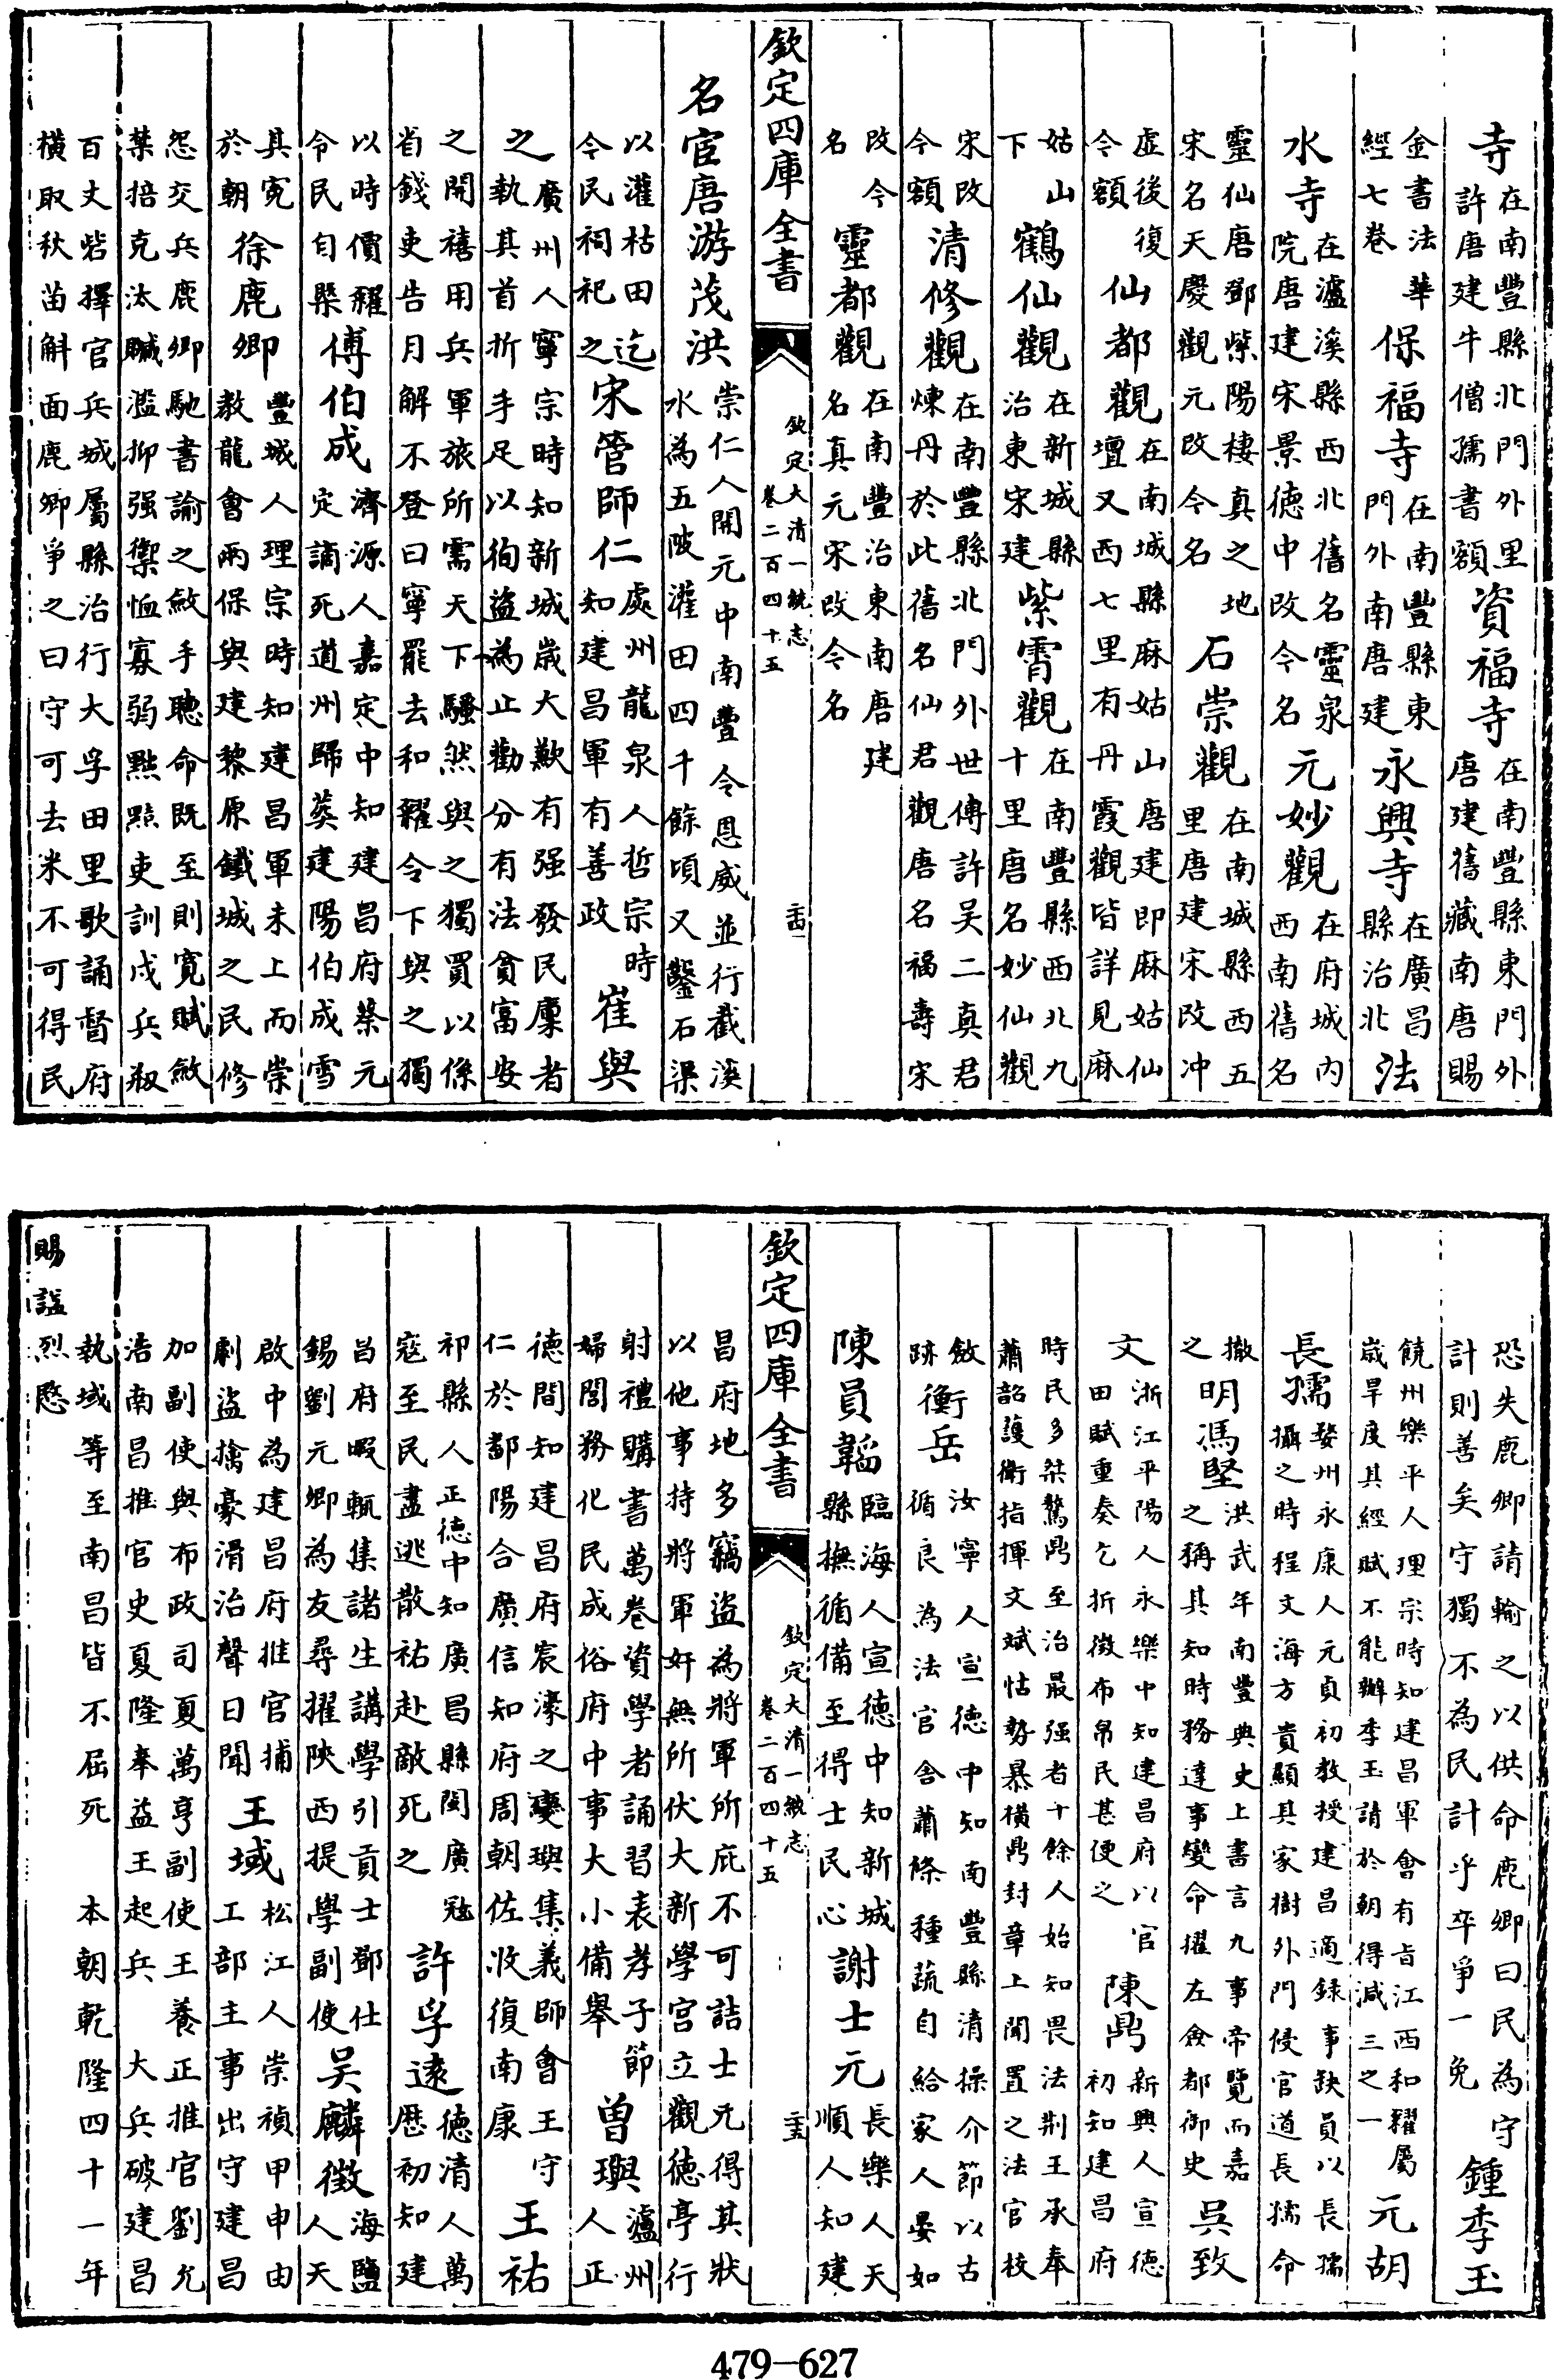 寺在南豐縣北門外里許唐建牛僧孺書額資福寺在南豐縣東門外唐建舊藏南唐賜
金書法華經七卷保福寺在南豐縣東門外南唐建永興寺在廣昌縣治北法
水寺在瀘溪縣西北舊名靈泉院唐建宋景德中改今名元妙觀在府城内西南舊名
靈仙唐鄧紫陽棲真之地宋名天慶觀元改今名石崇觀在南城縣西五里唐建宋改冲
虛後復今額仙都觀在南城縣麻姑山唐建即麻姑仙壇又西七里有丹霞觀皆詳見麻
姑山下鶴仙觀在新城縣治東宋建紫霄觀在南豐縣西北九十里唐名妙仙觀
宋改今額清修觀在南豐縣北門外世傳許吳二真君煉丹於此舊名仙君觀唐名福壽宋
改今名靈都觀在南豐治東南唐建名真元宋改今名
欽定四庫全書 欽定大清一統志卷二百四十五 二十四
名宦唐游茂洪崇仁人開元中南豐令恩威並行截溪水為五陂灌田四千餘頃又鑿石渠
以灌枯田迄今民祠祀之宋管師仁處州龍泉人哲宗時知建昌軍有善政崔與
之廣州人寧宗時知新城歲大歉有强發民廩者執其首折手足以徇盜為止勸分有法貧富安
之開禧用兵軍旅所需天下騷然與之獨買以係省錢吏告月解不登曰寧罷去和糴令下與之獨
以時價糴令民自槩傅伯成濟源人嘉定中知建昌府蔡元定謫死道州歸葬建陽伯成雪
其寃於朝徐鹿卿豐城人理宗時知建昌軍未上而崇教龍會兩保與建黎原鐵城之民修
怨交兵鹿卿馳書諭之斂手聽命既至則寬賦斂禁掊克汰贓濫抑强禦恤寡弱黥黠吏訓戍兵剏
百丈砦擇官兵城屬縣治行大孚田里歌誦督府橫取秋苗斛面鹿卿爭之曰守可去米不可得民
恐失鹿卿請輸之以供命鹿卿曰民為守計則善矣守獨不為民計乎卒爭一免鍾季玉
饒州樂平人理宗時知建昌軍會有旨江西和糴屬歲旱度其經賦不能辦季玉請於朝得減三之一元胡
長孺婺州永康人元貞初教授建昌適錄事缺員以長孺攝之時程文海方貴顯其家樹外門侵官道長孺命
撤之明馮堅洪武年南豐典史上書言九事帝覽而嘉之稱其知時務達事變命擢左僉都御史吳致
文浙江平陽人永樂中知建昌府以官田賦重奏乞折徵布帛民甚便之陳鼎新興人宣德初知建昌府
時民多桀驁鼎至治最强者十餘人始知畏法荆王承奉蕭韶護衛指揮文斌怙勢暴橫鼎封章上聞置之法官校
斂跡衡岳汝寧人宣德中知南豐縣清操介節以古循良為法官舍蕭條種蔬自給家人晏如
陳員韜臨海人宣德中知新城縣撫循備至得士民心謝士元長樂人天順人知建
欽定四庫全書 欽定大清一統志卷二百四十五 二十五
昌府地多竊盜為將軍所庇不可詰士元得其狀以他事持將軍奸無所伏大新學宮立觀德亭行
射禮購書萬卷資學者誦習表孝子節婦閭務化民成俗府中事大小備舉曾璵瀘州人正
德間知建昌府宸濠之變璵集義師會王守仁於鄱陽合廣信知府周朝佐收復南康王祐
祁縣人正德中知廣昌縣閩廣寇寇至民盡逃散祐赴敵死之許孚遠德清人萬歷初知建
昌府暇輒集諸生講學引貢士鄧仕錫劉元卿為友尋擢陝西提學副使吳麟徵海鹽人天
啟中為建昌府推官捕劇盜擒豪滑治聲日聞王域松江人崇禎甲申由工部主事出守建昌
加副使與布政司夏萬亨副使王養正推官劉允浩南昌推官史夏隆奉益王起兵大兵破建昌
執域等至南昌皆不屈死 本朝乾隆四十一年賜諡烈愍
479—627